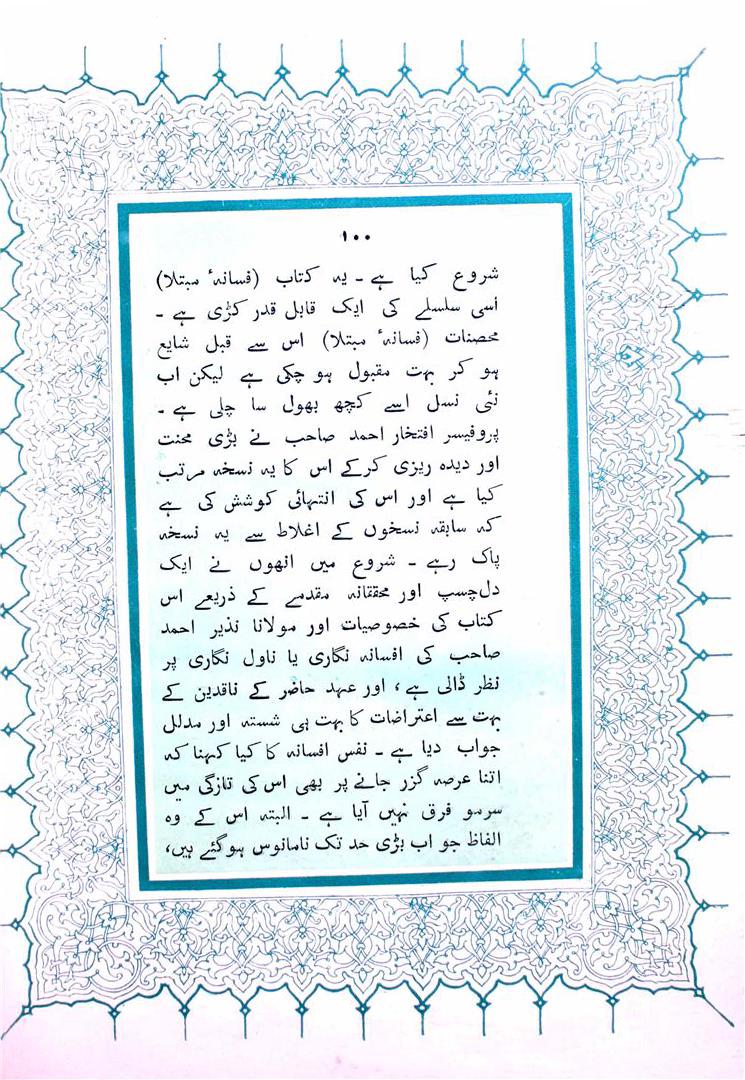 ۱۰۰
شروع کیا ہے ـ یہ کتاب (فسانۂ مبتلا)
اسی سلسلے کی ایک قابل قدر کڑی ہے ـ
محصنات (فسانۂ مبتلا) اس سے قبل شایع
ہو کر بہت مقبول ہو چکی ہے لیکن اب
نئی نسل اسے کچھ بھول سا چلی ہے ـ
پروفیسر افتخار احمد صاحب نے بڑی محنت
اور دیدہ ریزی کرکے اس کا یہ نسخہ مرتب
کیا ہے اور اس کی انتہائی کوشش کی ہے
کہ سابقہ نسخوں کے اغلاط سے یہ نسخہ
پاک رہے ـ شروع میں انھوں نے ایک
دلچسپ اور محققانہ مقدمے کے ذریعے اس
کتاب کی خصوصیات اور مولانا نذیر احمد
صاحب کی افسانہ نگاری یا ناول نگاری پر
نظر ڈالی ہے، اور عہد حاضر کے ناقدین کے
بہت سے اعتراضات کا بہت ہی شستہ اور مدلل
جواب دیا ہے ـ نفس افسانہ کا کیا کہنا کہ
اتنا عرصہ گزر جانے پر بھی اس کی تازگی میں
سرمو فرق نہیں آیا ہے ـ البتہ اس کے وہ
الفاظ جو اب بڑی حد تک نامانوس ہوگئے ہیں،